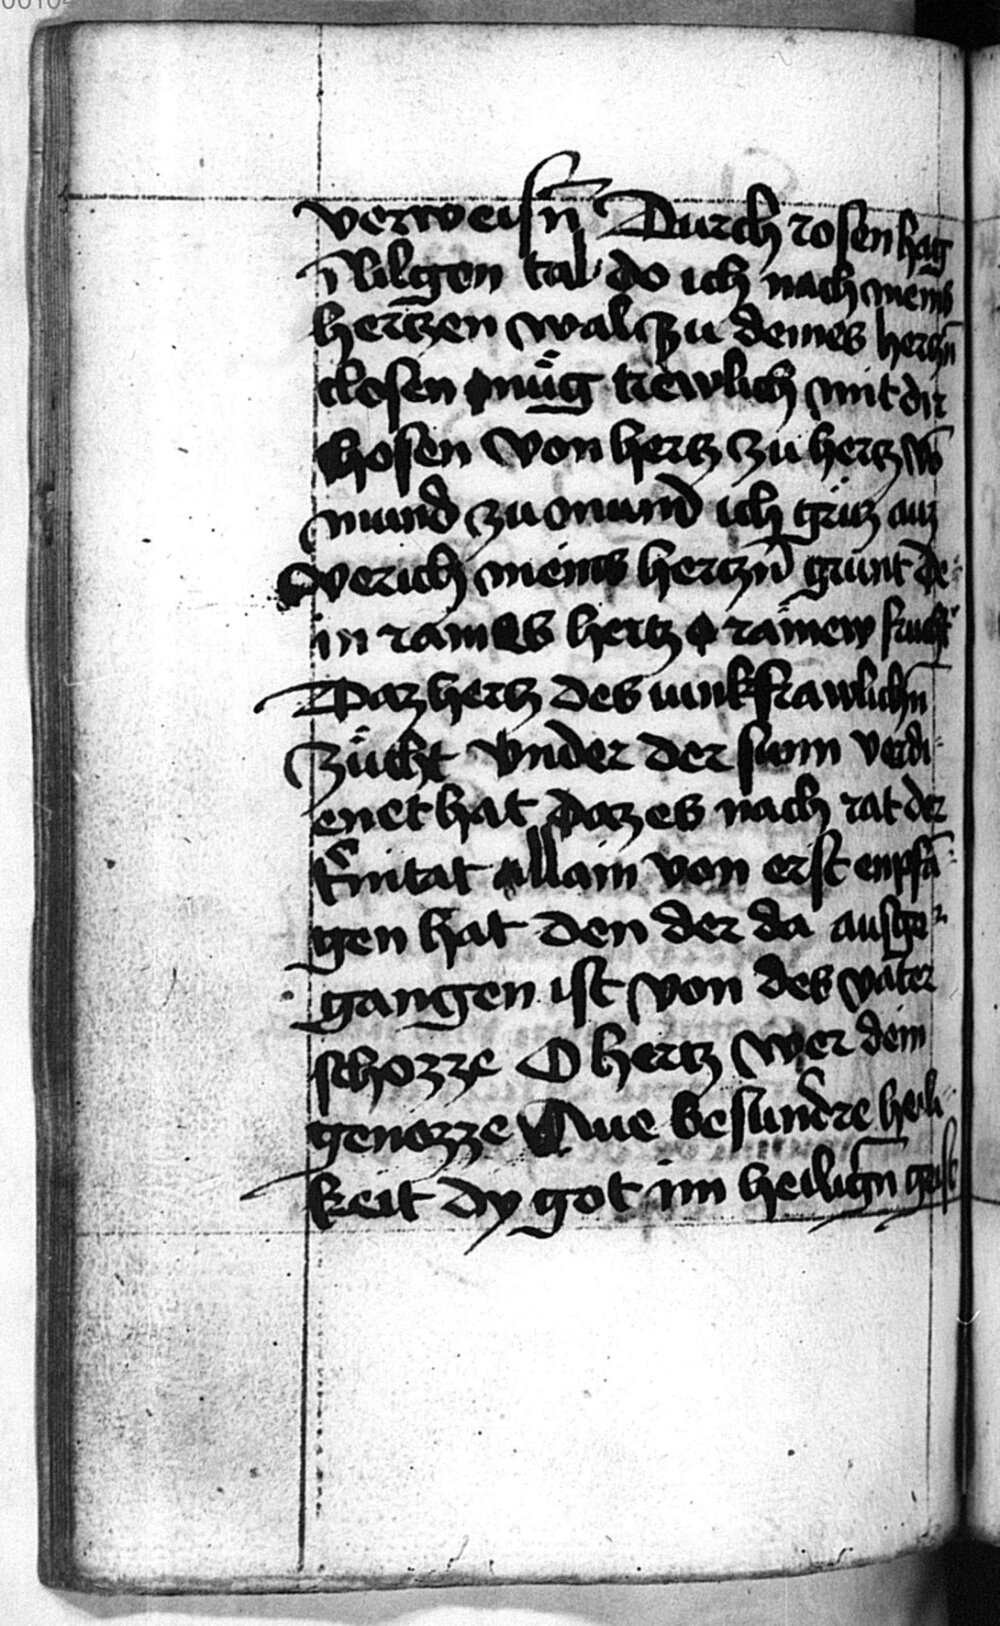 verweisn̄ Durch rosen hag
n̄ lilgen tal do ich nach meīs
hertzen wal zu deines hertzn̄
closen mu̇g trewlich mit dir
chosen Von hertz zu hertz vō
mund zu mund ich gruz auz
Verich meins hertzn̄ grunt de-
in raines hertz O rainew frucht
Daz hertz des iunkfrawlichn̄
Zücht Vnder der sunn verdi-
enet hat Daz es nach rat der
t͛initat allain von erst enpfā-
gen hat den der da ausge-
gangen ist von des vater
schozze O hertz wer dein
genozze Aue besundre heili-
keit dy got im heilign̄ geist